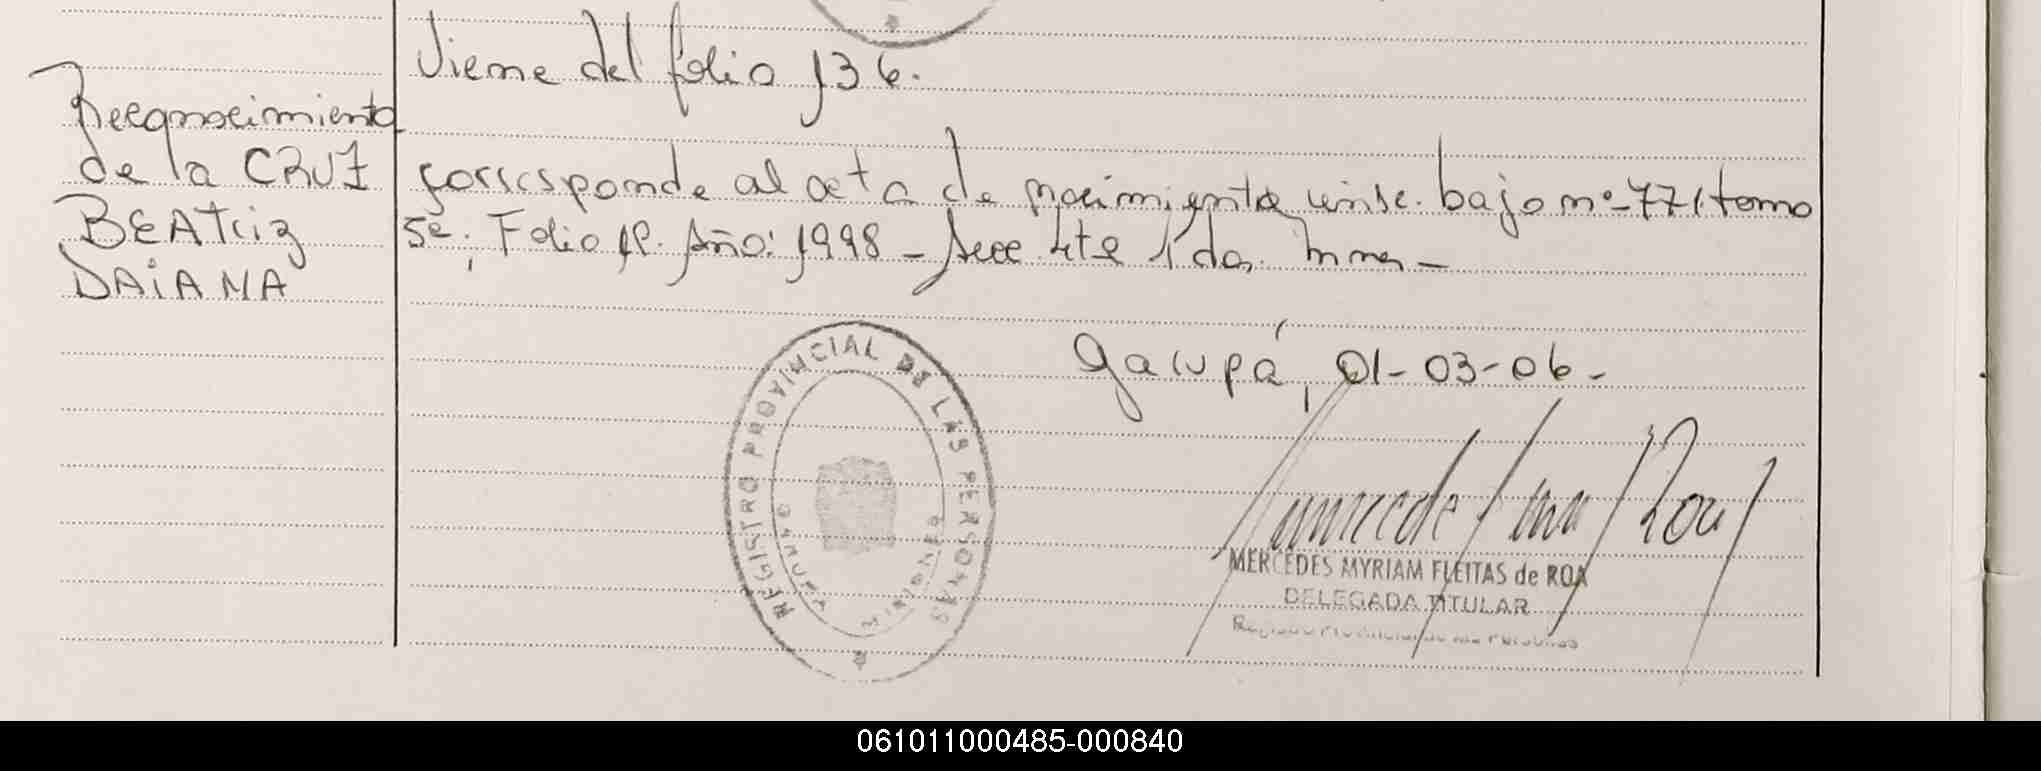 Viene del folio 136.
Reconocimiento
de la CRUZ
BEATriz
DAiANA
corresponde al acta de nacimiento insc. bajo nº 771 tomo
5º, Folio Año: 1998 - Secc 1da.
Garupá, 01-03-06-
REGISTRO PROVINCIAL DE LAS PERSONAS
GARUPA
MISIONES
MERCEDES MYRIAM FLEITAS de ROA
DELEGADA TITULAR
Registro Provincial de las Personas
061011000485-000840